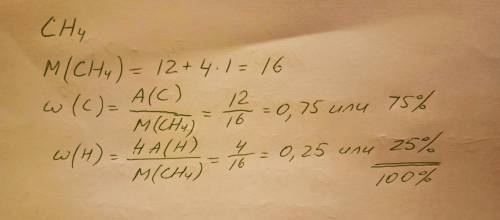 CH₄
M(CH₄) = 12 + 4·1 = 16
ω(C) = A(C)/M(CH₄) = 12/16 = 0,75 или 75%
ω(H) = 4A(H)/M(CH₄) = 4/16 = 0,25 или 25%
100%